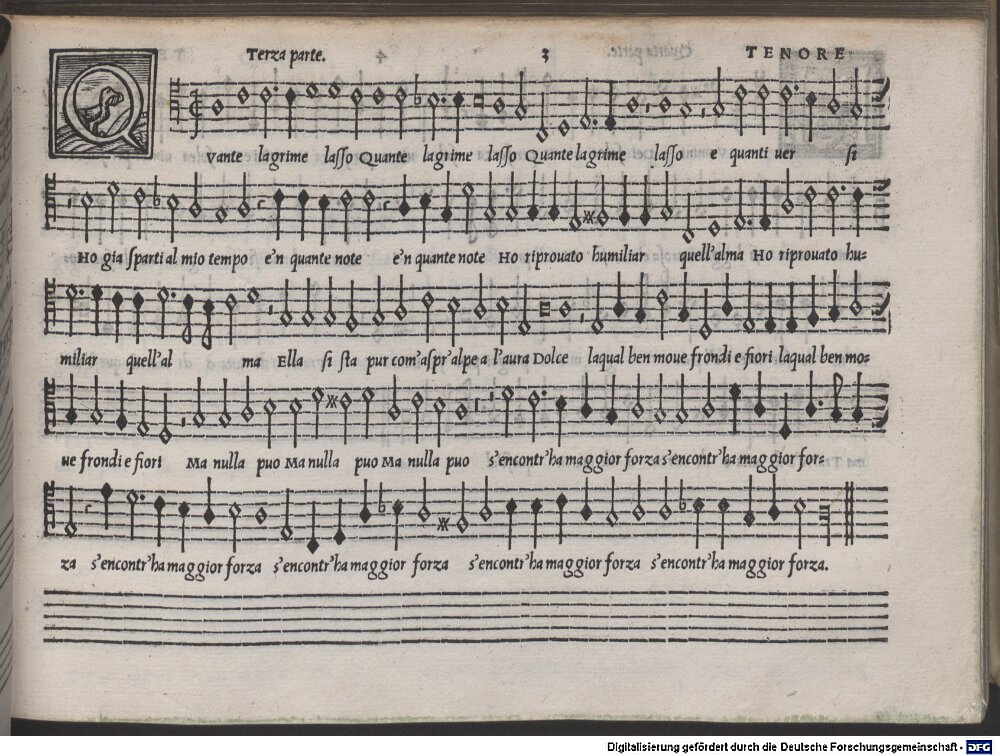 Terza parte. 3 TENORE
QVante lagrime lasso Quante lagrime lasso Quante lagrime lasso e quanti uer si
Ho gia sparti al mio tempo e'n quante note e'n quante note Ho riprouato humiliar quell'alma Ho riprouato hu=
miliar quell'al ma Ella si sta pur com'aspr'alpe a l'aura Dolce laqual ben moue frondi e fiori laqual ben mo=
ue frondi e fiori Ma nulla puo Ma nulla puo Ma nulla puo s'encontr'ha maggior forza s'encontr'ha maggior for=
za s'encontr'ha maggior forza s'encontr'ha maggior forza s'encontr'ha maggior forza s'encontr'ha maggior forza.
Digitalisierung gefördert durch die Deutsche Forschungsgemeinschaft - DFG